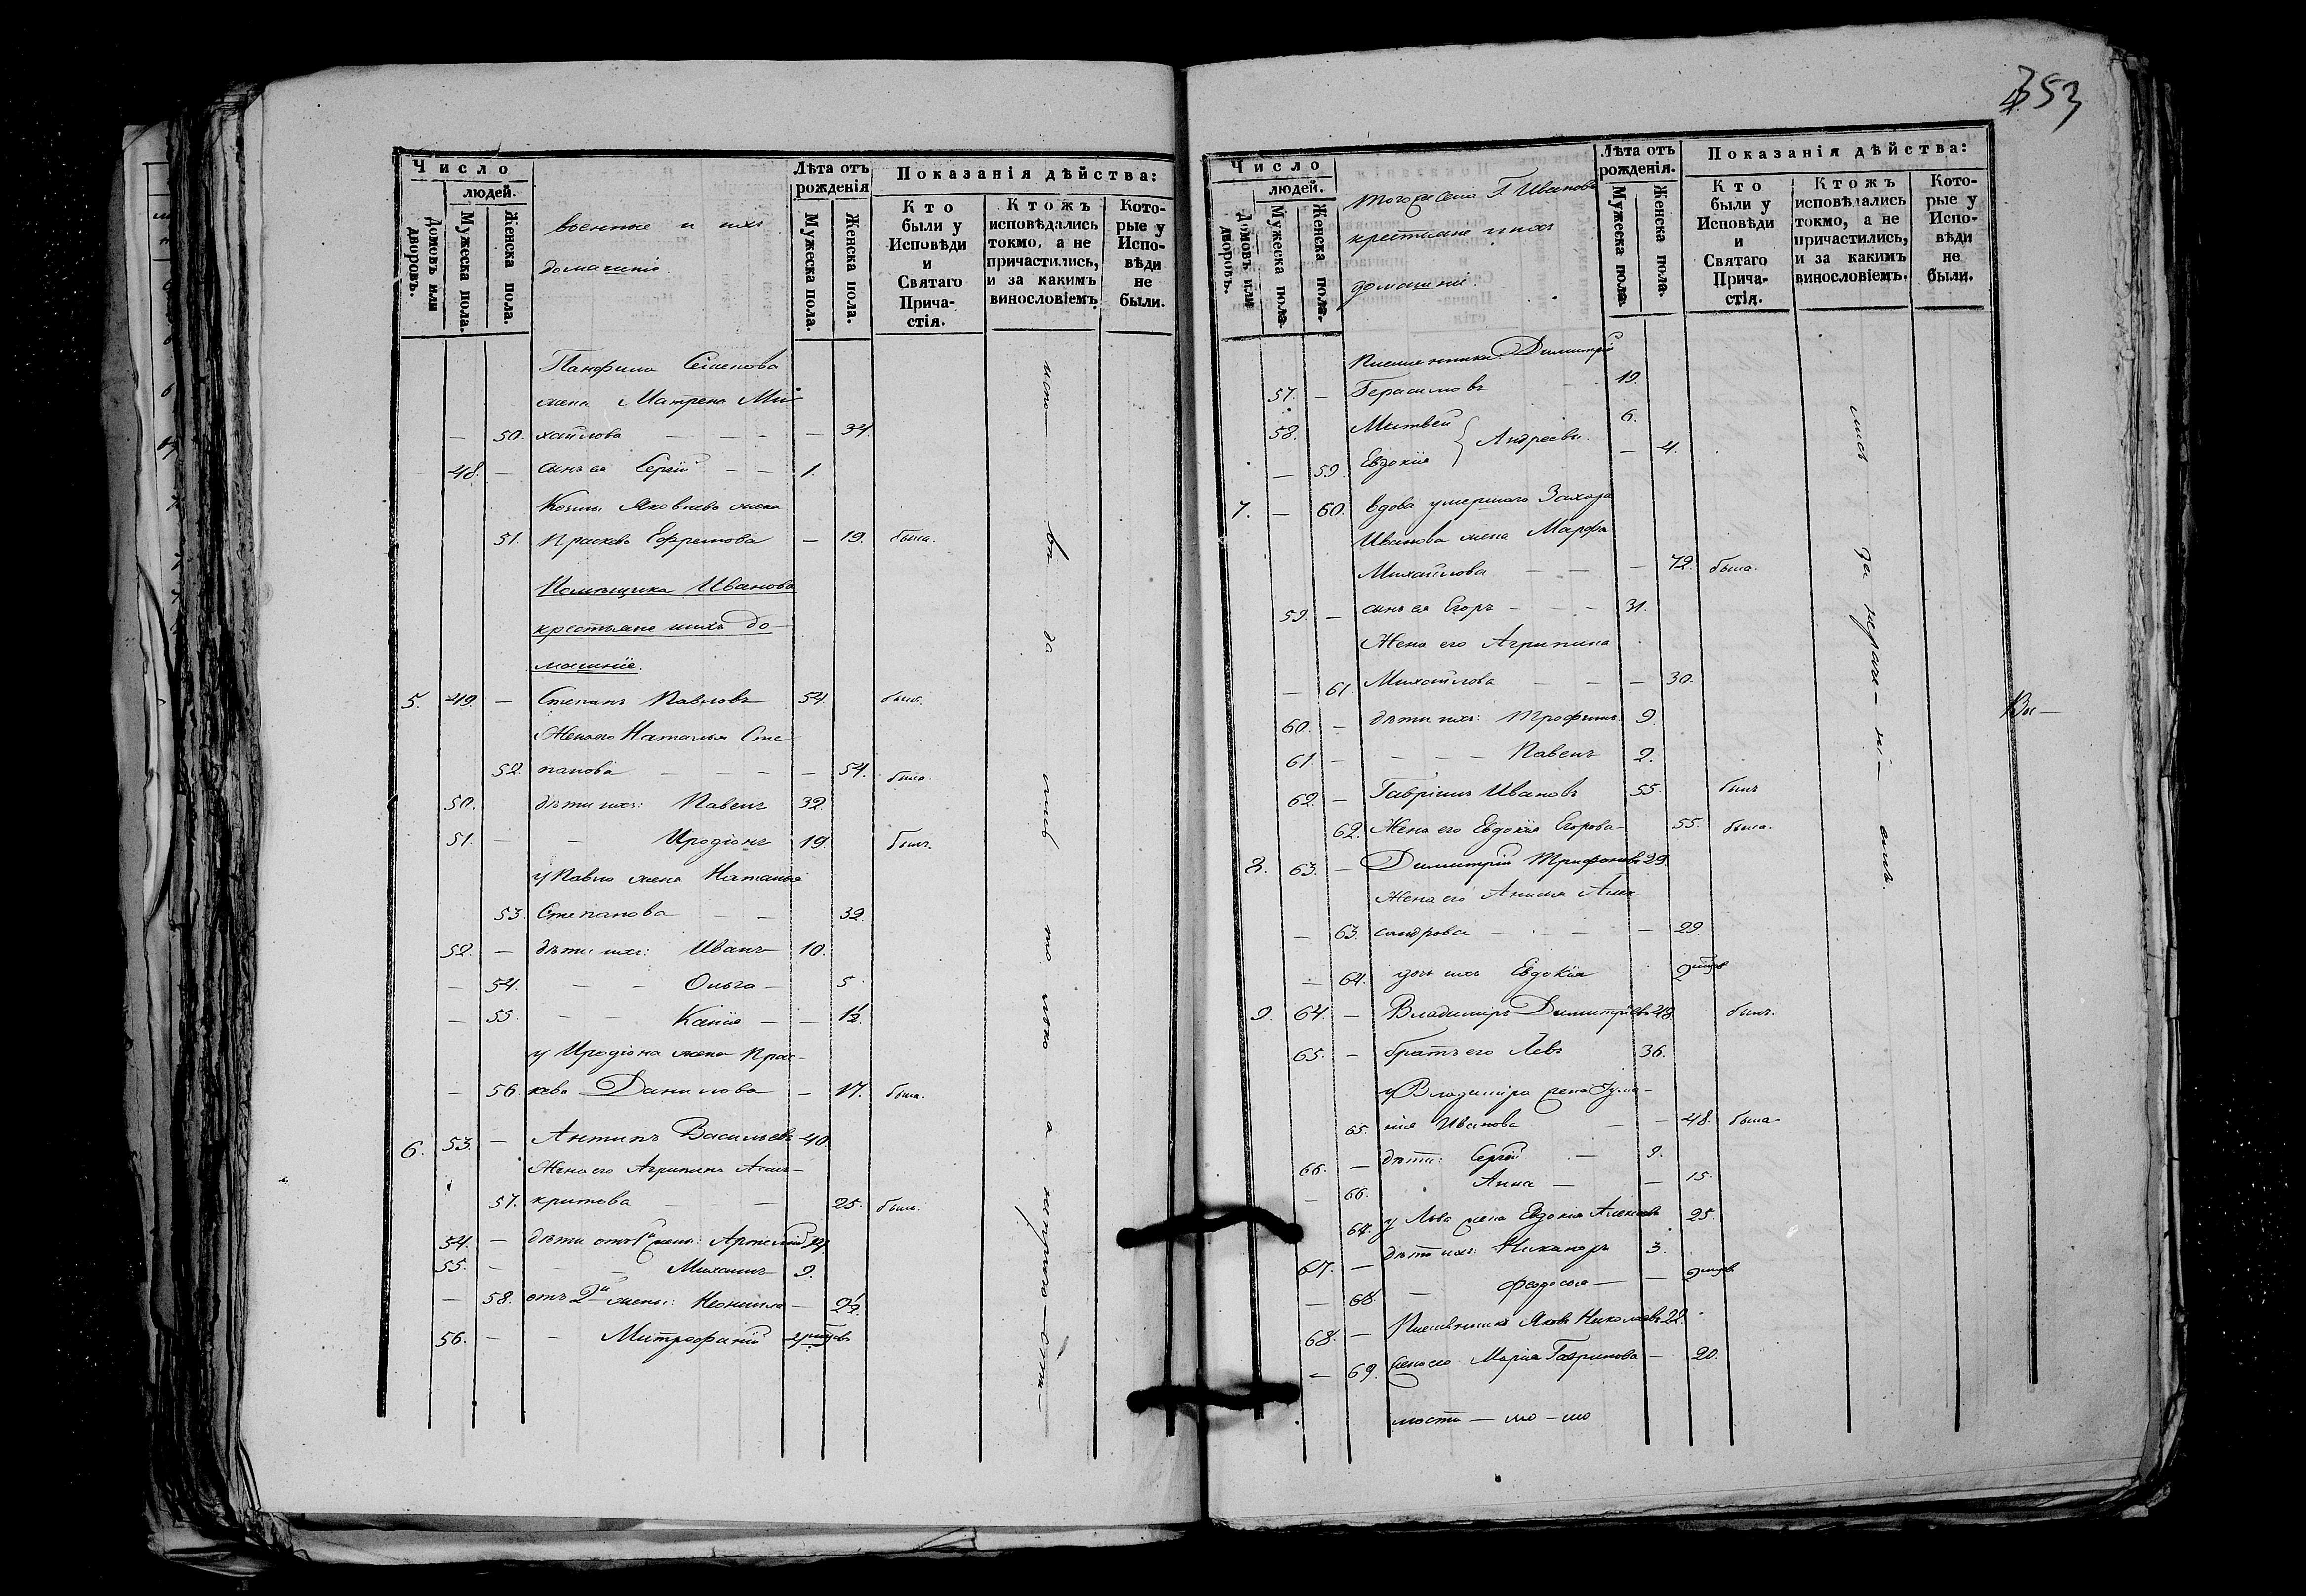 353
Число
людей.
Домовъ или дворовъ.
Мужеска пола.
Женска пола.
военные и ихъ
домашніе.
Лѣта отъ
рожденія
Мужеска пола.
Женска пола.
Показанія дѣйства:
Кто
были у
Исповѣди
и
Святаго
Прича-
стія.
Ктожъ
исповѣдались
токмо, а не
причастились,
и за какимъ
винословіемъ.
Кото-
рые у
Испо-
вѣди
не
были.
Панфила Семенова
жена Матрена Ми-
— 50. хайлова — — — — 34.
48. — сынъ ея Сергій — — 1.
Козьмы Яковлева жена
51. Прасковья Ефремова — 19. была.
Помѣщика Иванова
крестьяне и ихъ до-
машніе.
5. 49. — Степанъ Павловъ 54. былъ.
Жена его Наталья Сте
52. панова — — — — 54. была.
50. дѣти ихъ: Павелъ 32.
51. — — Иродіонъ 19. былъ.
у Павла жена Наталья
53. Степанова — — 32.
52. — дѣти ихъ: Иванъ 10.
— 54. — — Ольга — 5.
— 55. — — — — 1½.
у Иродіона жена Прас-
— 56. кева Данилова — 17. была.
6. 53. — Антипъ Васильевъ 40
Жена его Агрипина
57. — 25. была.
54. — дѣти отъ 1й жены:
55. — — — Михаилъ 9.
— 58. отъ 2й жены: Неонила — 2½.
56. — — Митрофаній
Число
людей.
Домовъ или дворовъ.
Мужеска пола.
Женска пола.
того же села Г. Иванова
крестьяне и ихъ
домашніе.
Лѣта отъ
рожденія.
Мужеска пола.
Женска пола.
Показанія дѣйства:
Кто
были у
Исповѣди
и
Святаго
Прича-
стія.
Ктожъ
исповѣдались
токмо, а не
причастились,
и за какимъ
винословіемъ.
Кото-
рые у
Испо-
вѣди
не
были.
Димитрій
57. — Герасимовъ — — 19.
58. Матвей 6.
Андреевы.
— 59. Евдокія — 4.
7. — 60. вдова умершаго Захара
Иванова жена Марфа
Михайлова — — — 72. была.
59. — сынъ ея Егоръ — — — 31.
Жена его Агрипина
— 61. Михайлова — — — 30.
60. — дѣти ихъ: Трофимъ 9.
61. — — — — Павелъ 2.
62. — Гавріилъ Ивановъ 55. былъ
62. Жена его Евдокія Егорова — 55. была.
8. 63. — Димитрій Трифоновъ 29.
Жена его Анисья Алек-
— 63. сандрова — — — — 29.
— 64. дочь ихъ Евдокія
9. 64. — Владиміръ Димитріевъ 48. былъ.
65. — братъ его Левъ 36.
у Владиміра жена Іулiа-
65. нія Иванова — — 48. была.
66. — дѣти: Сергѣй — 9.
— 66. Анна — — 15.
67. у Льва жена Евдокія 25.
67. — дѣти ихъ: Никаноръ 3.
— 68. — Феодосья — —
68. — Яковъ Николаевъ 22.
— 69. Жена его Марія Гаврилова — 20.
Вы—